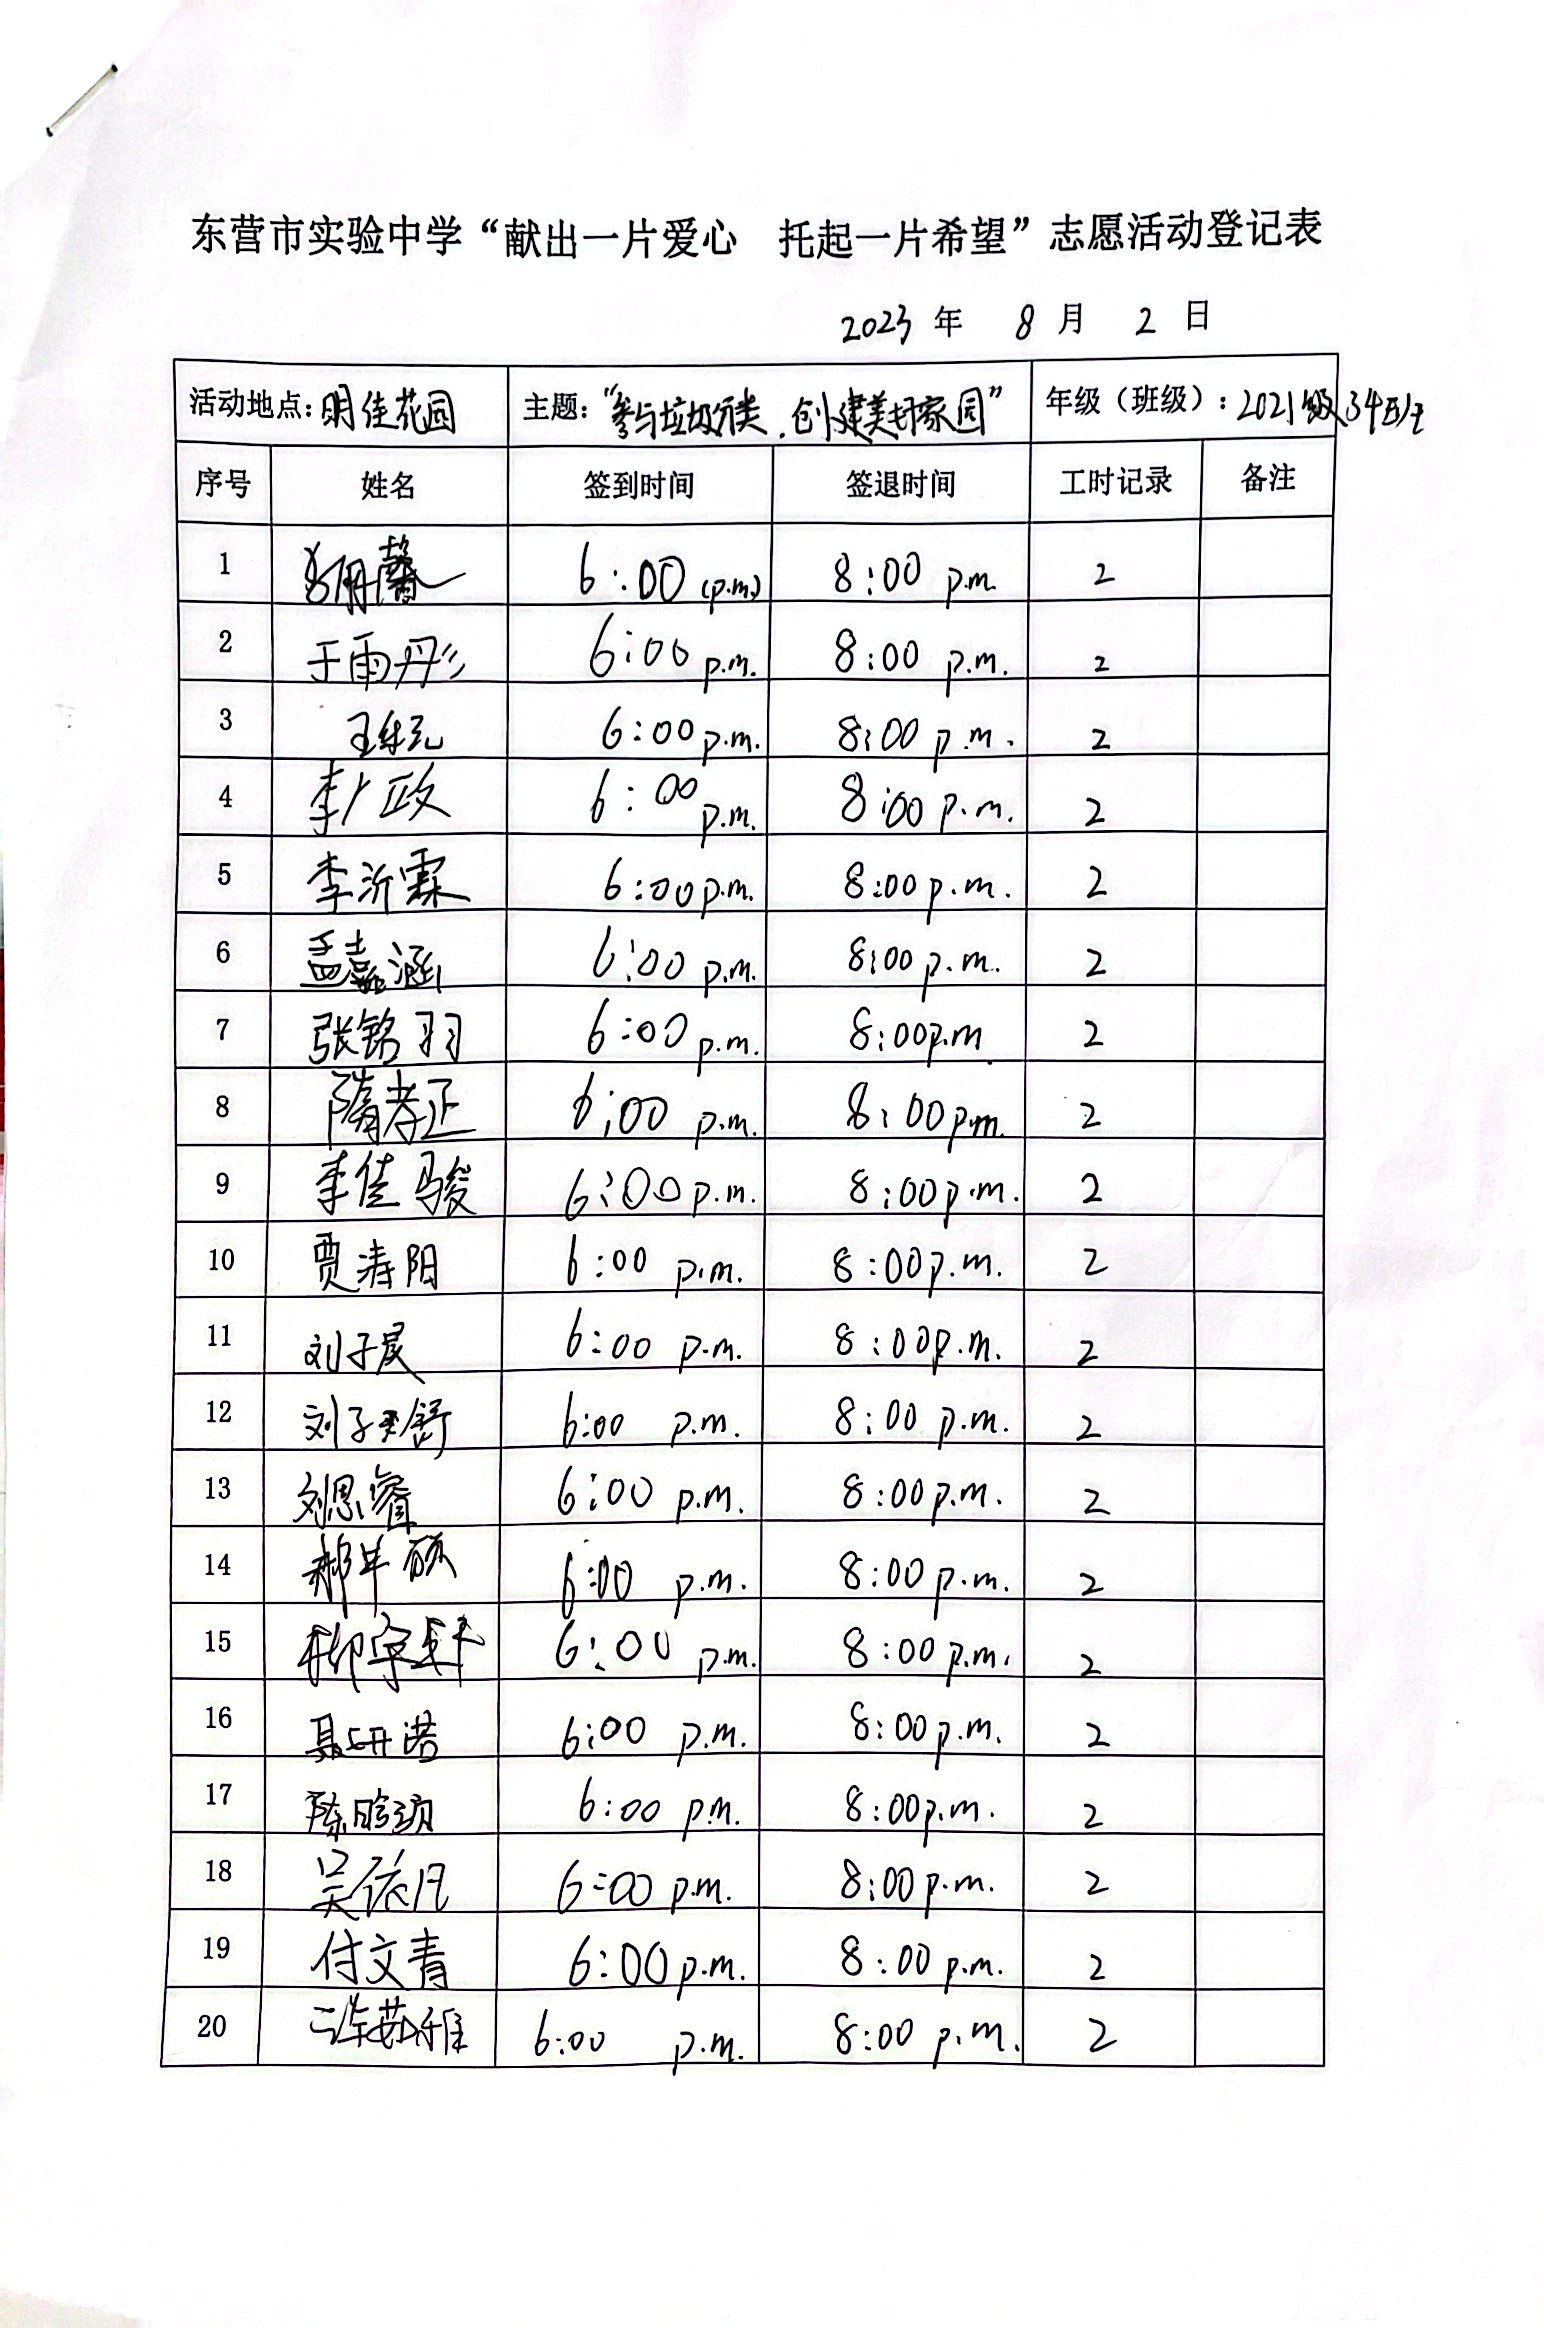 东营市实验中学“献出一片爱心 托起一片希望”志愿活动登记表
2023 年 8 月 2 日
活动地点:明佳花园 主题:“参与垃圾分类,创建美好家园” 年级(班级):2021级34班
序号 姓名 签到时间 签退时间 工时记录 备注
1 6:00 (p.m.) 8:00 p.m. 2
2 于雨彤 6:00 p.m. 8:00 p.m. 2
3 6:00 p.m. 8:00 p.m. 2
4 李广政 6:00 p.m. 8:00 p.m. 2
5 李沂霖 6:00 p.m. 8:00 p.m. 2
6 孟嘉涵 6:00 p.m. 8:00 p.m. 2
7 张铭羽 6:00 p.m. 8:00 p.m 2
8 隋孝正 6:00 p.m. 8:00 p.m. 2
9 李佳骏 6:00 p.m. 8:00 p.m. 2
10 贾涛阳 6:00 p.m. 8:00 p.m. 2
11 刘子晨 6:00 p.m. 8:00 p.m. 2
12 6:00 p.m. 8:00 p.m. 2
13 刘思睿 6:00 p.m. 8:00 p.m. 2
14 6:00 p.m. 8:00 p.m. 2
15 6:00 p.m. 8:00 p.m. 2
16 聂妍诺 6:00 p.m. 8:00 p.m. 2
17 6:00 p.m. 8:00 p.m. 2
18 吴依凡 6:00 p.m. 8:00 p.m. 2
19 付文青 6:00 p.m. 8:00 p.m. 2
20 6:00 p.m. 8:00 p.m. 2